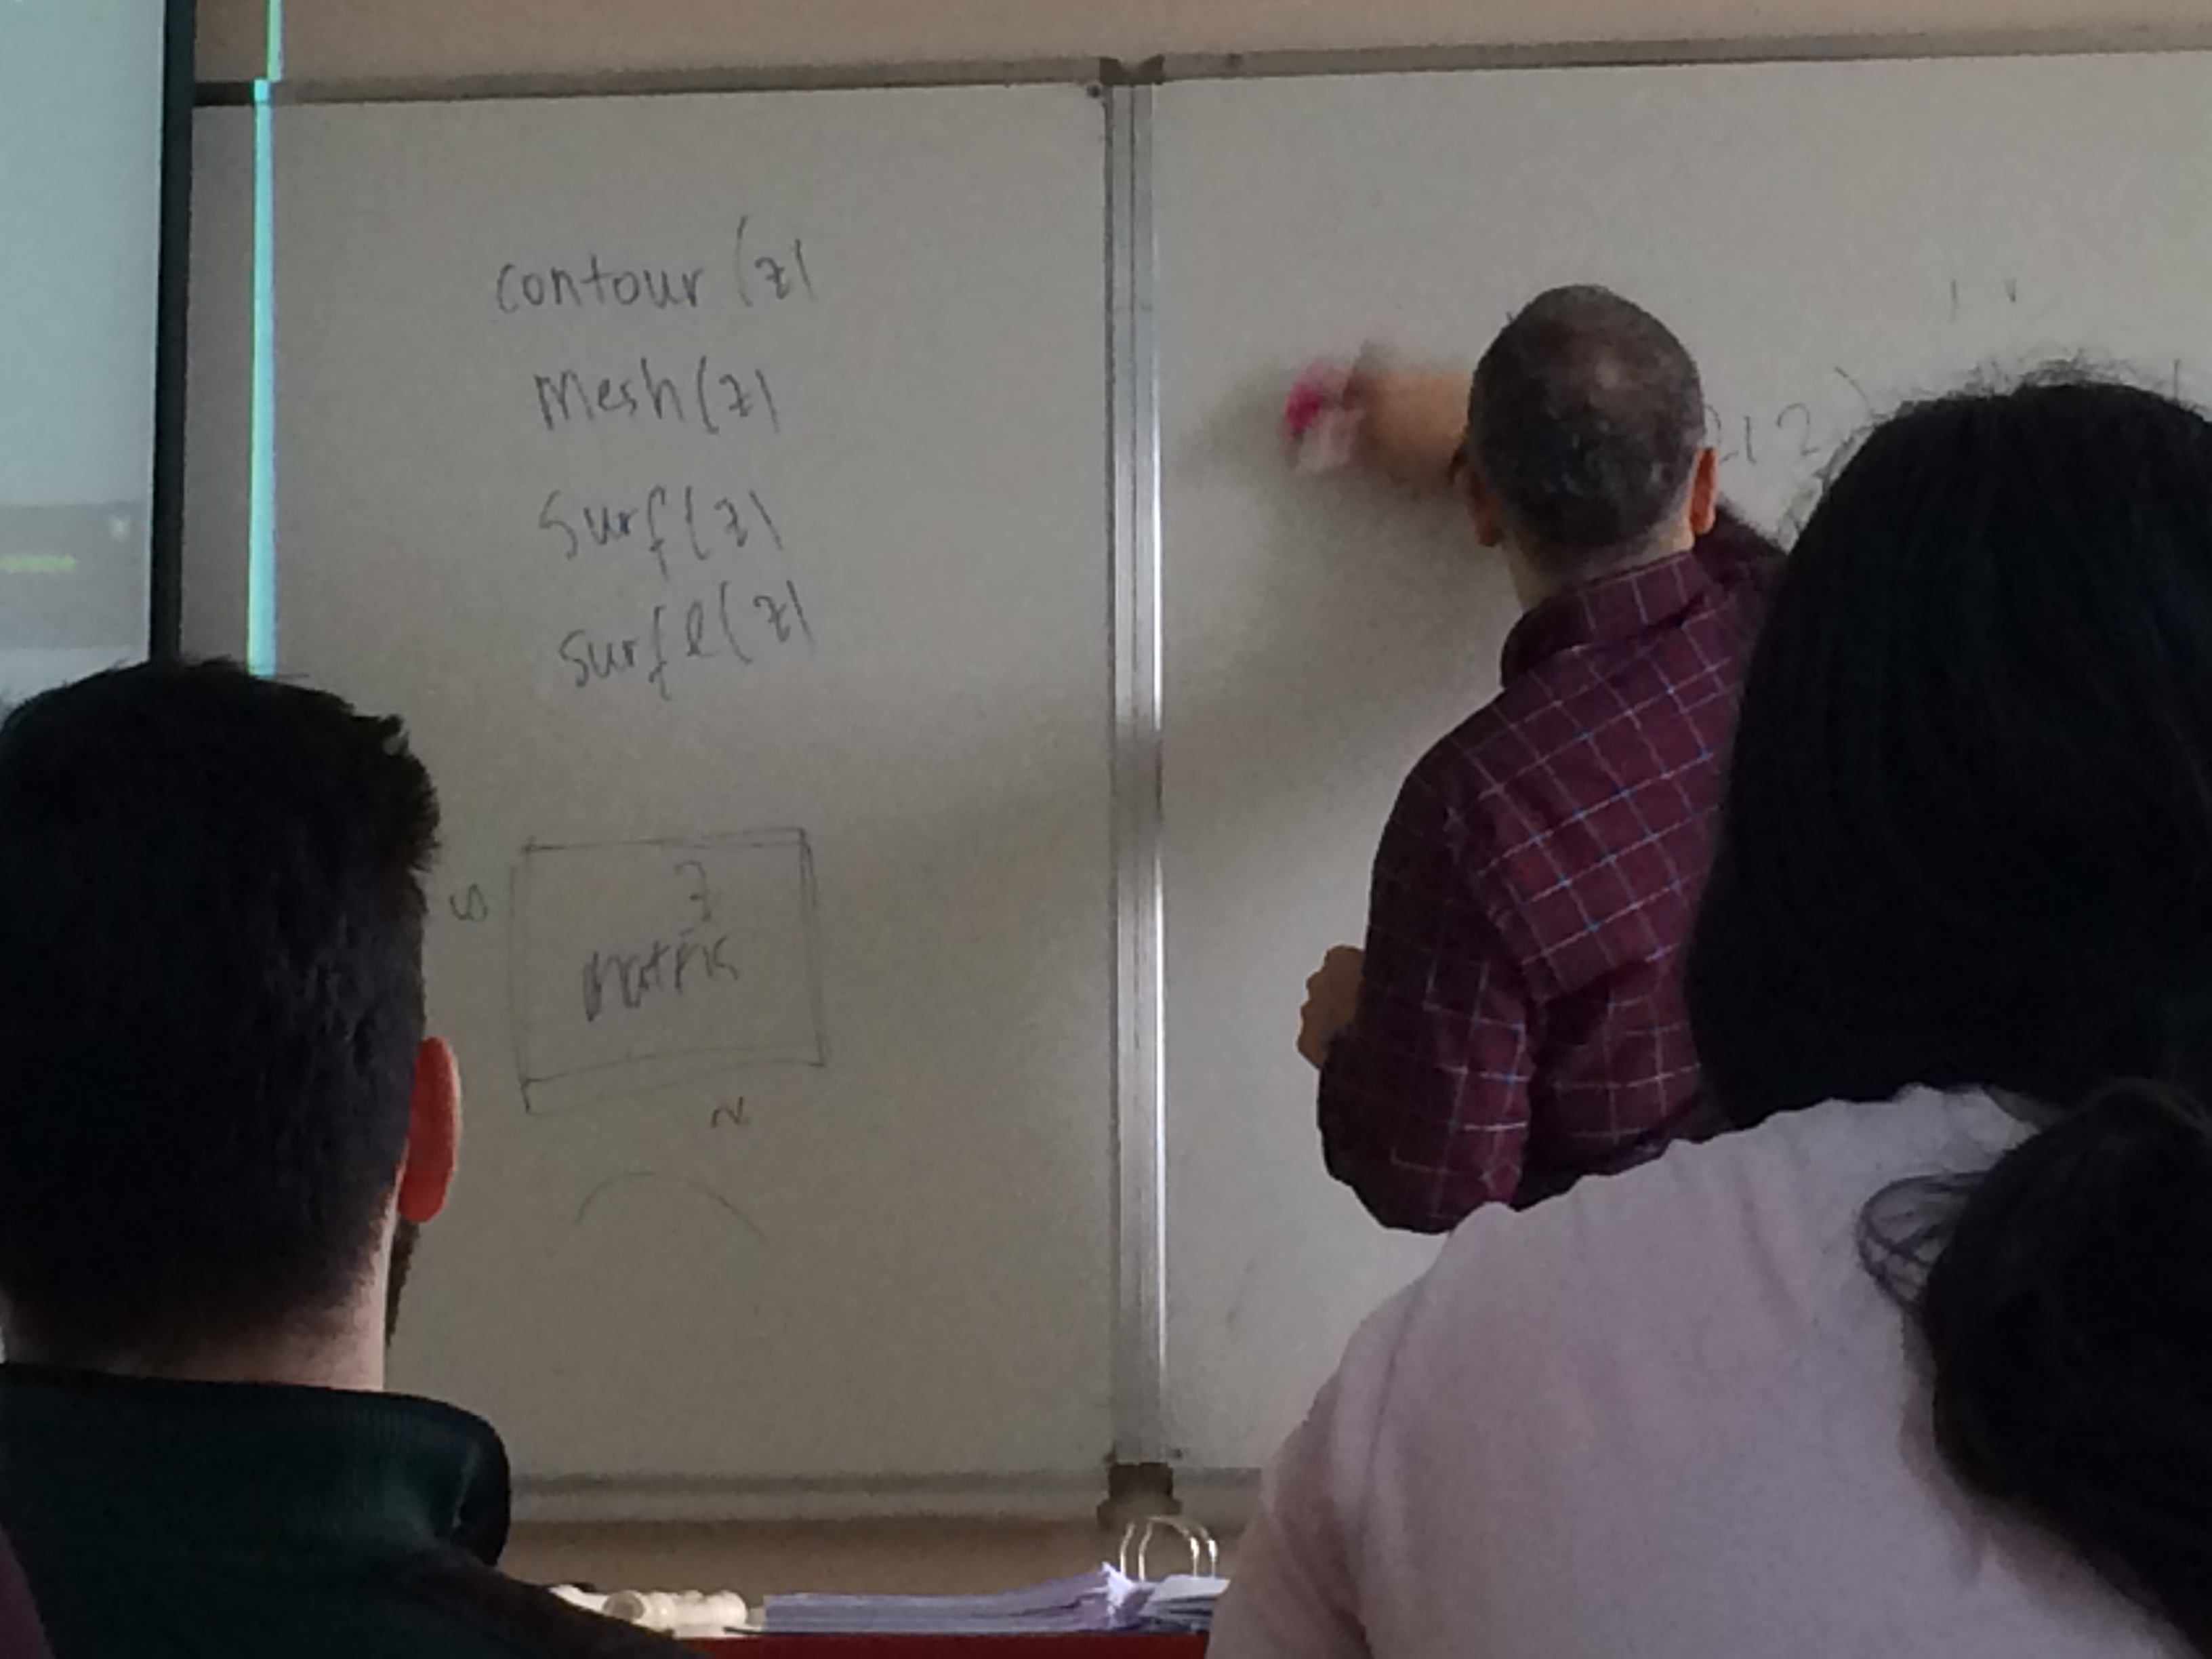 contour (z)
Mesh(z)
Surf(z)
surfl(z)
z
matris
212)